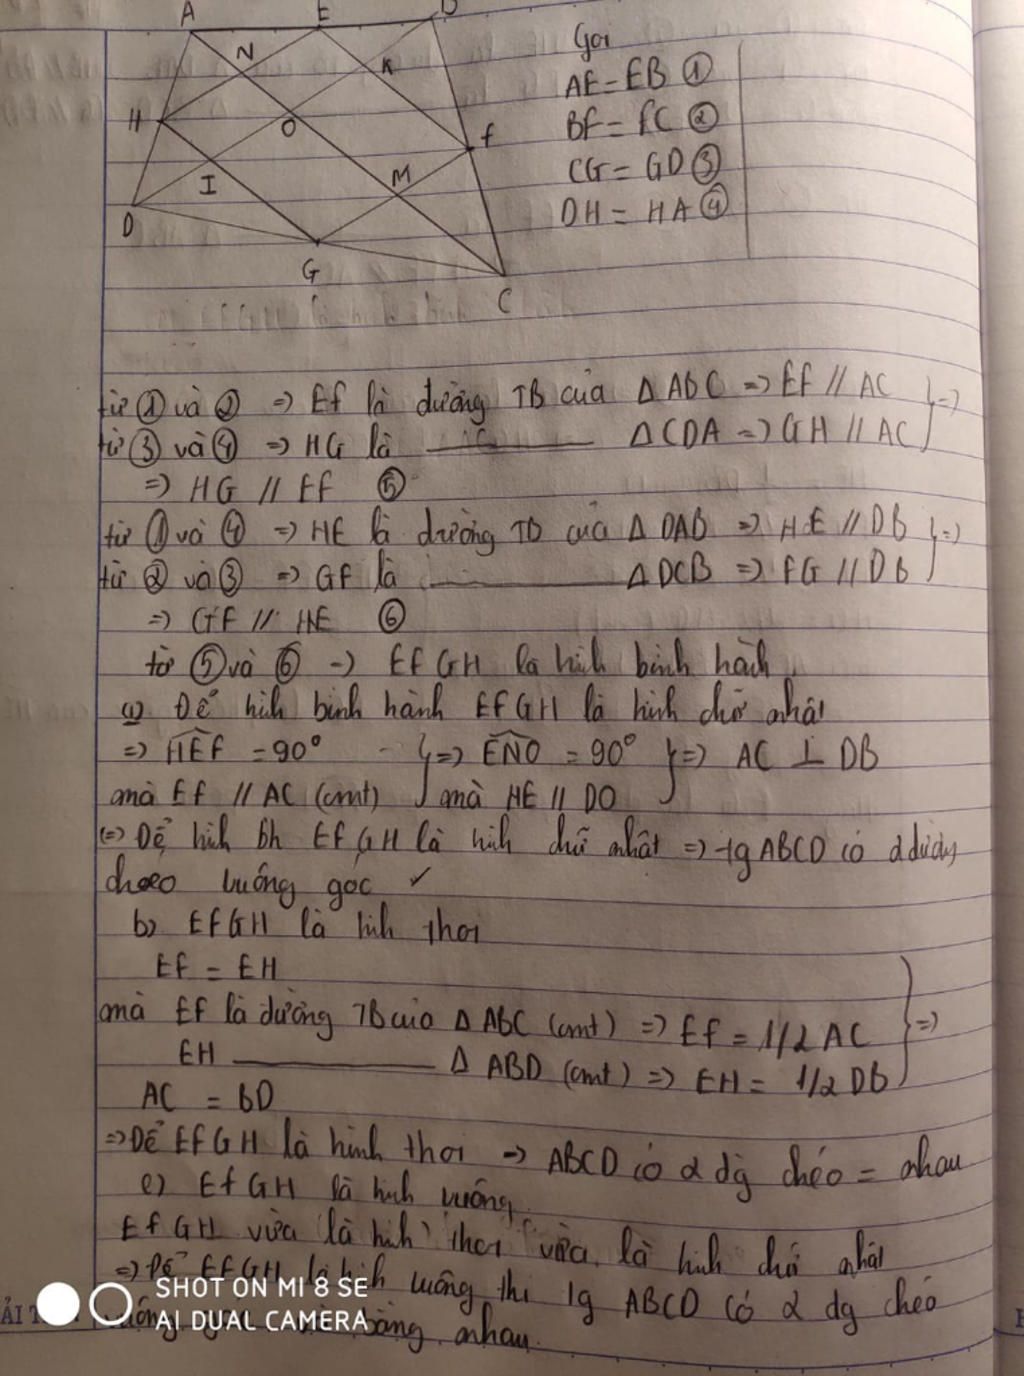 A E B
N K
H O F
I M
D
G
C
Gọi
AE = EB ①
BF = FC ②
CG = GD ③
DH = HA ④
từ ① và ② => EF là đường TB của Δ ABC => EF // AC
từ ③ và ④ => HG là ——— Δ CDA => GH // AC } =>
=> HG // EF ⑤
từ ① và ④ => HE là đường TB của Δ DAB => HE // DB
từ ② và ③ => GF là ——— Δ DCB => FG // DB } =>
=> GF // HE ⑥
từ ⑤ và ⑥ -> EFGH là hình bình hành
a) Để hình bình hành EFGH là hình chữ nhật
=> HEF = 90° } => ENO = 90° } => AC ⊥ DB
mà EF // AC (cmt) mà HE // DO
(=> Để hình bh EFGH là hình chữ nhật => tg ABCD có 2 đường
chéo vuông góc ✓
b) EFGH là hình thoi
EF = EH
mà EF là đường TB của Δ ABC (cmt) => EF = 1/2 AC
EH ——— Δ ABD (cmt) => EH = 1/2 DB } =>
AC = BD
=> Để EFGH là hình thoi -> ABCD có 2 đg chéo = nhau
c) EFGH là hình vuông
EFGH vừa là hình thoi vừa là hình chữ nhật
=> Để EFGH là hình vuông thì tg ABCD có 2 đg chéo
bằng nhau.
SHOT ON MI 8 SE
AI DUAL CAMERA